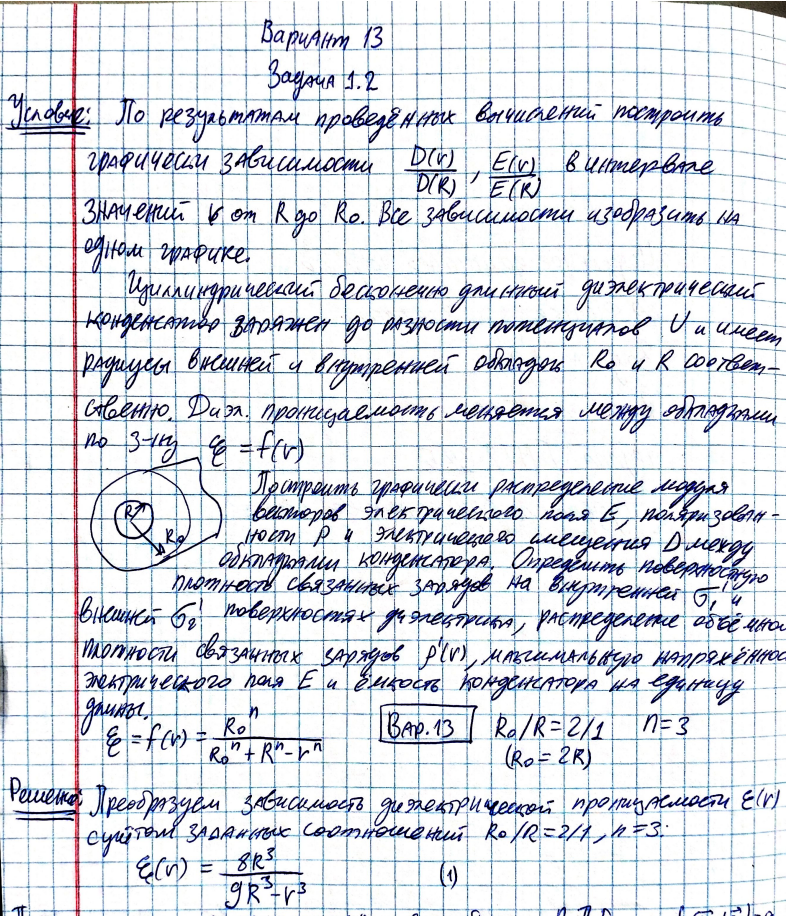 Вариант 13
Задача 1.2
Условие: По результатам проведённых вычислений построить
графически зависимости D(r)/D(R), E(r)/E(R) в интервале
значений r от R до R₀. Все зависимости изобразить на
одном графике.
Циллиндрический бесконечно длинный диэлектрический
конденсатор заряжен до разности потенциалов U и имеет
радиусы внешней и внутренней обкладок R₀ и R соответ-
ственно. Диэл. проницаемость меняется между обкладками
по з-ну ε = f(r)
R R₀
Построить графически распределение модуля
векторов электрического поля E, поляризован-
ности P и электрического смещения D между
обкладками конденсатора. Определить поверхностную
плотность связанных зарядов на внутренней σ₁' и
внешней σ₂' поверхностях диэлектрика, распределение объёмной
плотности связанных зарядов ρ'(r), максимальную напряжённос
электрического поля E и ёмкость конденсатора на единицу
длины.
ε = f(r) = R₀ⁿ/(R₀ⁿ + Rⁿ - rⁿ) Вар.13 R₀/R = 2/1 n = 3
(R₀ = 2R)
Решение: Преобразуем зависимость диэлектрической проницаемости ε(r)
с учётом заданных соотношений R₀/R = 2/1, n = 3:
ε(r) = 8R³/(9R³ - r³) (1)